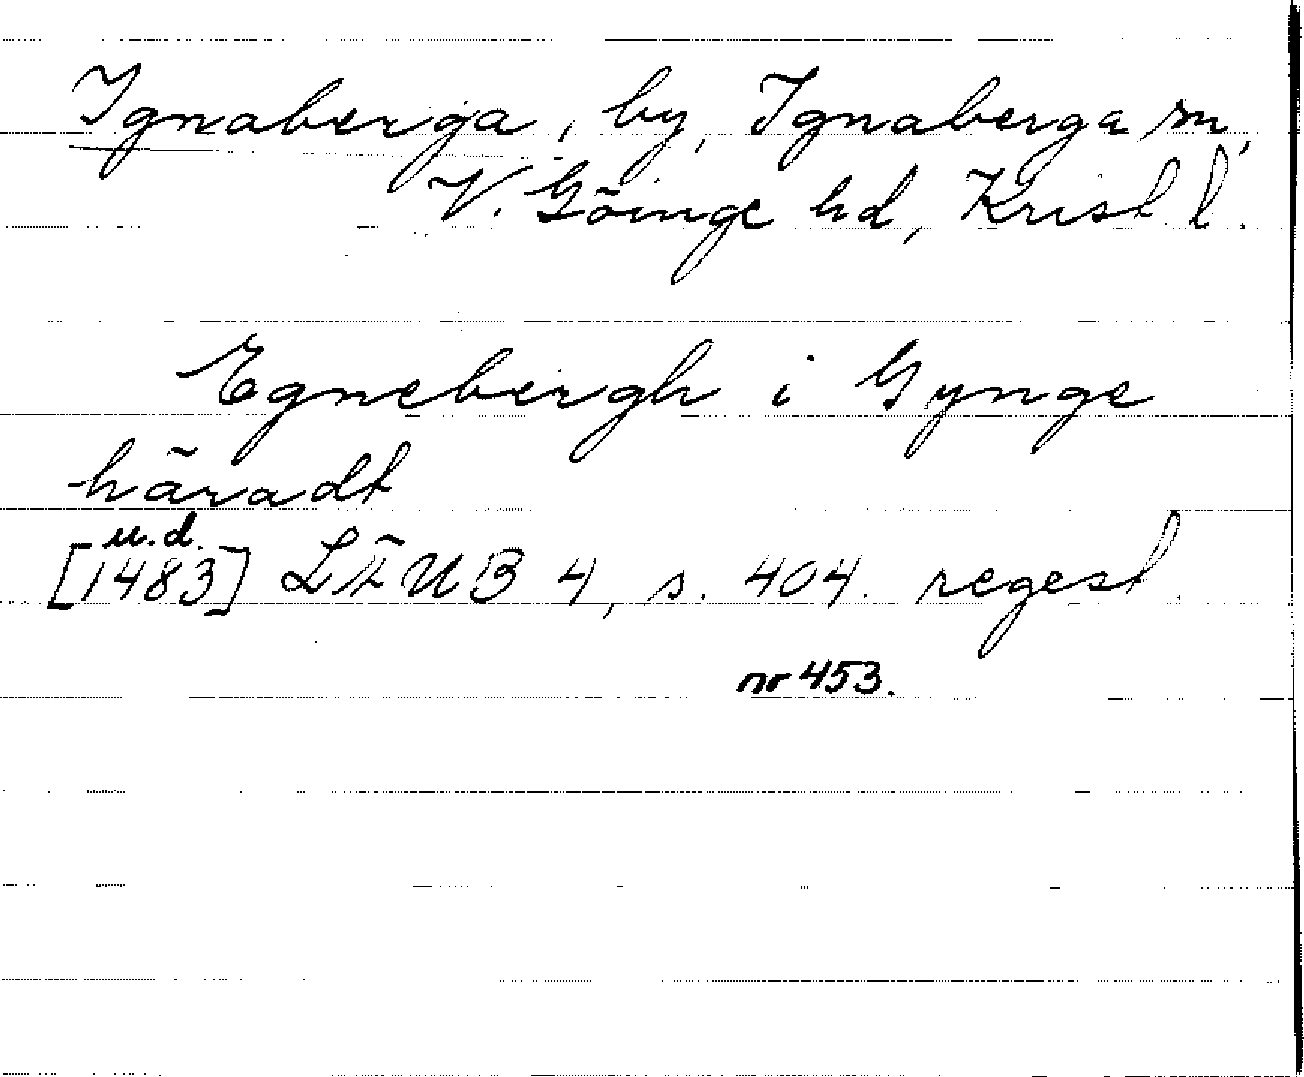 Ignaberga, by, Ignaberga sn,
V. Göinge hd, Krist l.
Egnebergh i Gynge
häradt
u.d.
[1483] LÄUB 4, s. 404. regest
nr 453.